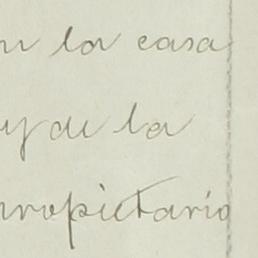 en la casa
y de la
propietario